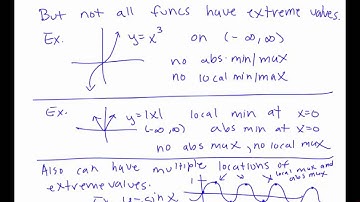 But not all funcs have extreme values.
Ex. y = x³ on (-∞, ∞)
no abs min/max
no local min/max
Ex. y = |x| local min at x=0
(-∞, ∞) abs min at x=0
no abs max, no local max
Also can have multiple locations of
extreme values.
local max and
abs max
1
Ex. y = sin x